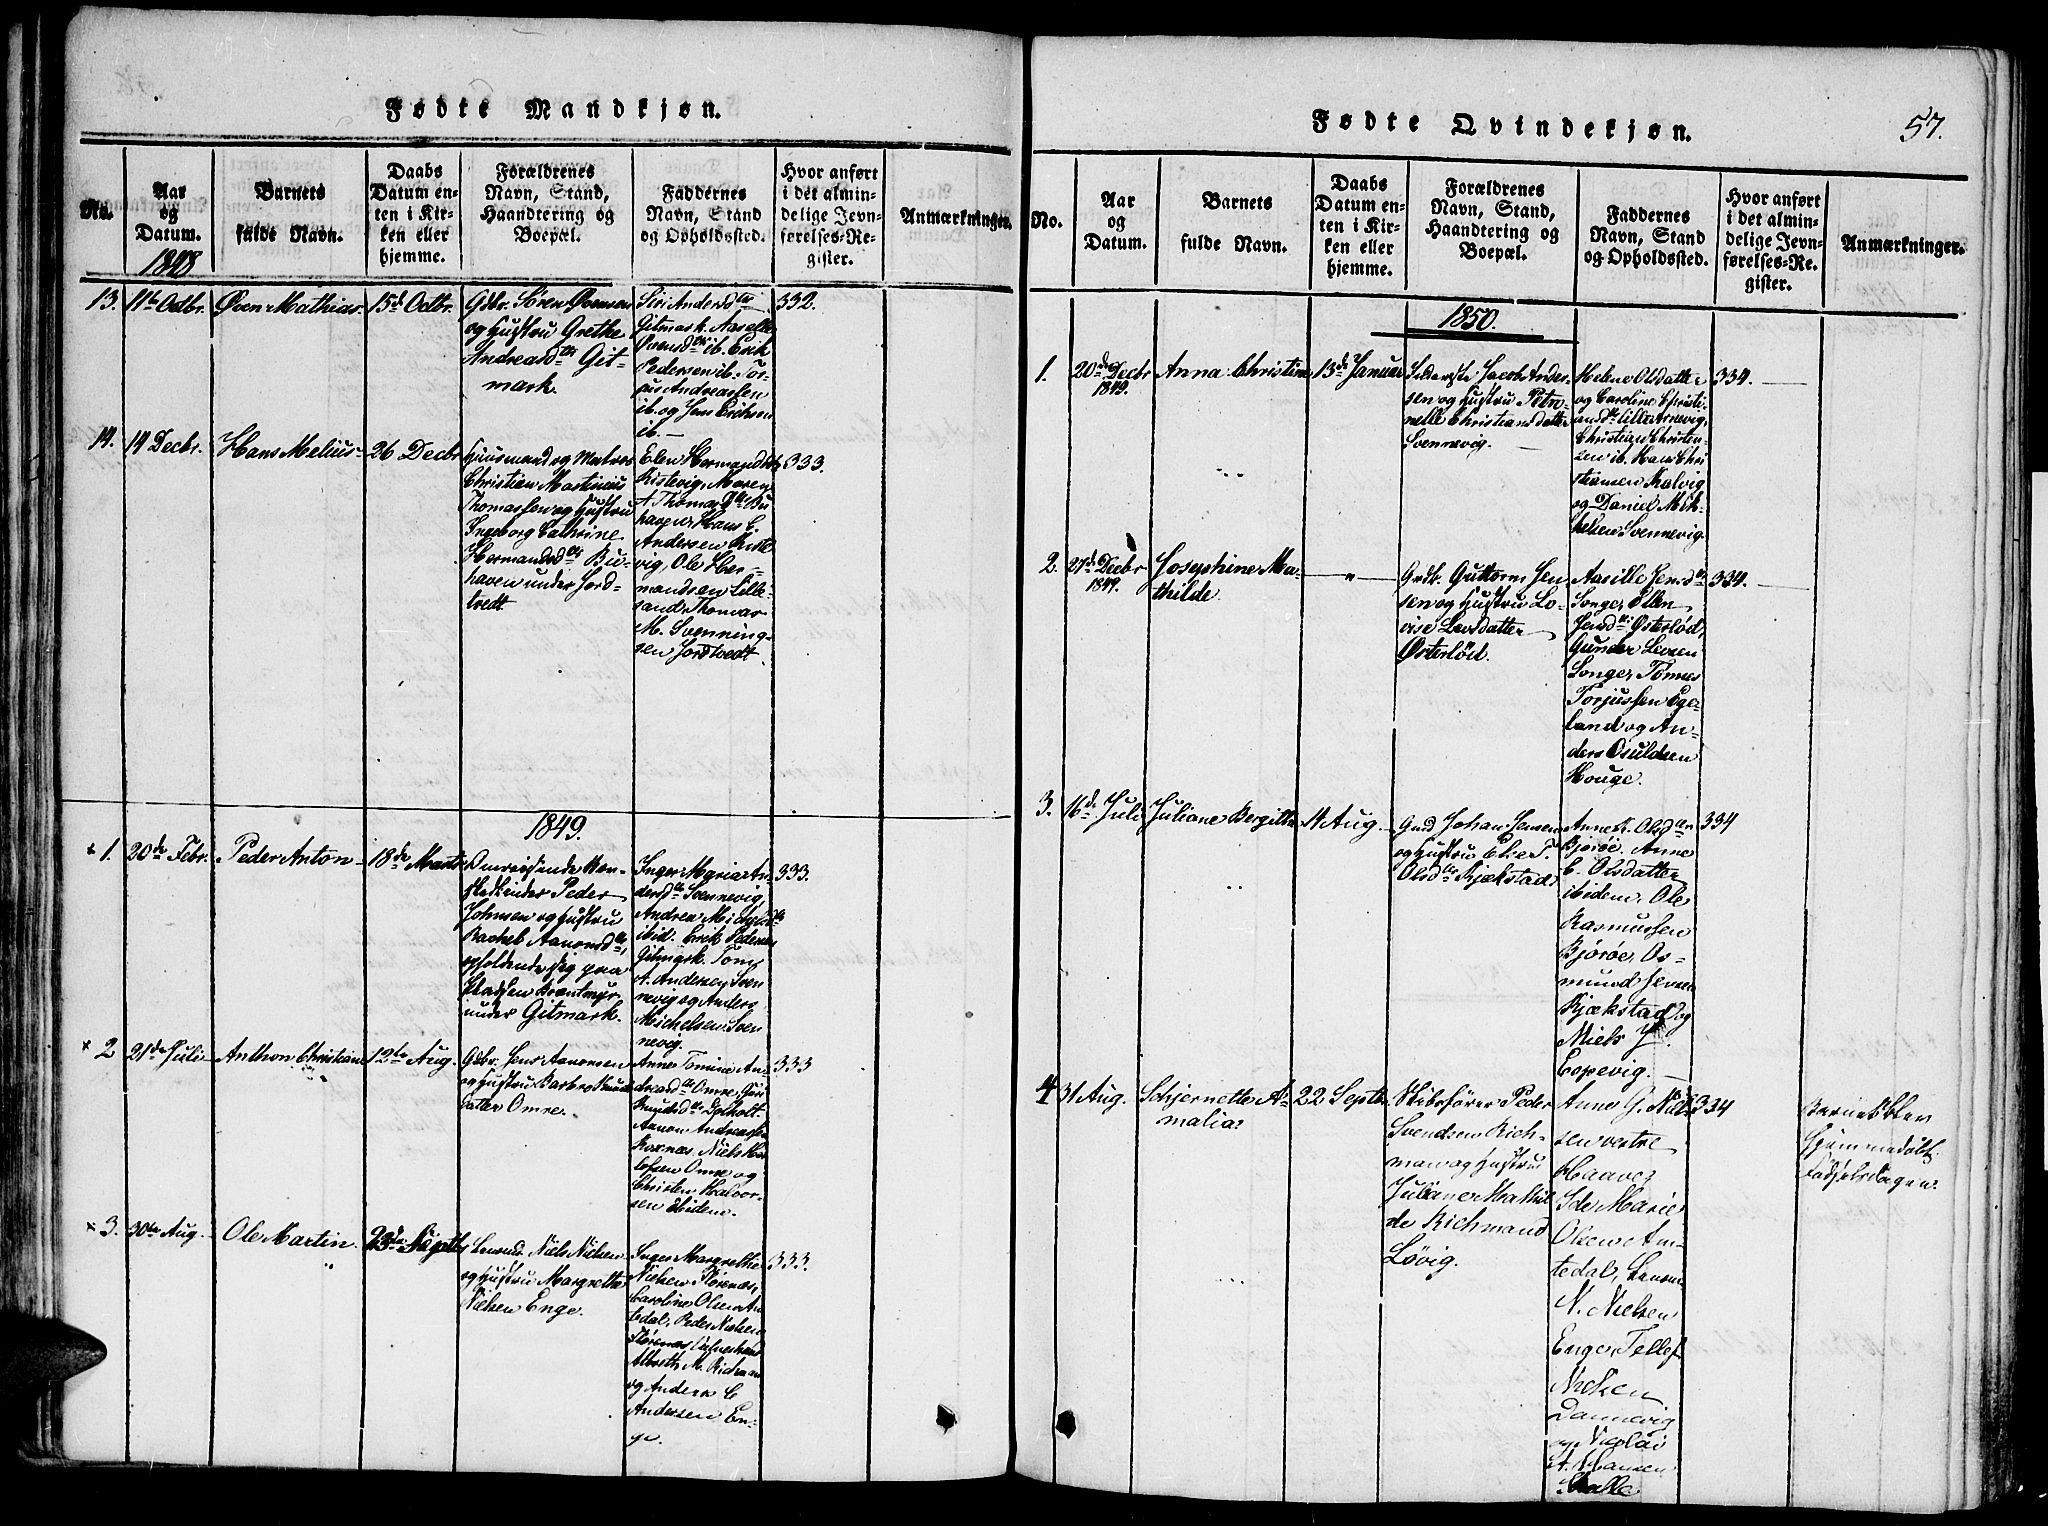 Fødte Mandkjøn.
No.
Aar
og
Datum.
1848
Barnets
fulde Navn.
Daabs
Datum en-
ten i Kir-
ken eller
hjemme.
Forældrenes
Navn, Stand,
Haandtering og
Boepæl.
Faddernes
Navn, Stand
og Opholdssted.
Hvor anført
i det almin-
delige Jevn-
førelses-Re-
gister.
Anmærkninger.
13.
11te Octbr.
Øven Mathias
15de Octbr.
Gdbr. Søren Øvensen
og Hustru Grethe
Andreasdtr Git-
mark.
Siri Andersdtr
Gitmark. Aaselle
ib. Erik
Pedersen ib. Tor-
jus Andreassen
ib. og Jens Eriksen
ib.
332.
14.
14 Decbr.
Hans Melius
26 Decbr
Huusmand og Matros
Christian Martinius
Thomassen og Hustru
Ingeborg Cathrine
Hermandsdtr Bu-
haven under Jord-
tvedt
Elen Hermandsdtr
Kistevig, Maren
A Thomasdtr Bu
haven, Hans C.
Andersen Kiste
vig, Ole Her-
mandsen Lille-
sand, Thomas
M. Svenning-
sen Jordtvedt
333.
1849.
× 1.
20de Febr.
Peder Anton
18de Marts
Omreisende
Peder
Johnsen og Hustru
Rachel Aanonsdtr,
opholdende sig paa
Pladsen Brontmyr
under Gitmark.
Inger Maria An-
dersdtr Svennevig,
Andrea
ibid. Erik Pedersen
Gitmark. Tom
A. Andersen Sven
nevig og Anders
Michelsen Sven
nevig.
333.
× 2
31de Juli
Anthon Christian
12te Aug.
Gdbr. Jens Aanonsen
og Hustru Barbro Knuds
datter Omre.
Anne Tomine An-
dreasdtr Omre,
Knudsdtr
Aanon Andreassen
Niels
Omre og
Christen Halvor-
sen ibidem.
333
× 3.
30te Aug.
Ole Martin
23de Septbr
Niels Nielsen
og Hustru Margrethe
Nielsen Enge.
Inger Margrethe
Nielsen
Caroline Olsen
Peder Nielsen
Albreth M. Richman
og Anders C
Andersen En-
ge.
333.
Fødte Qvindekjøn.
57.
No.
Aar
og
Datum.
Barnets
fulde Navn.
Daabs
Datum en-
ten i Kir-
ken eller
hjemme.
Forældrenes
Navn, Stand,
Haandtering og
Boepæl.
Faddernes
Navn, Stand
og Opholdssted.
Hvor anført
i det almin-
delige Jevn-
førelses-Re-
gister.
Anmærkninger.
1850.
1.
20de Decbr
1849.
Anna Christine
13de Januar
Jacob Ander-
sen og Hustru Petro-
nelle Christiansdatter
Svennevig.
Helene Olsdatter
og Caroline Christi-
andtr Lille Arnevig,
Christian Christen-
sen ib. Hans Chri
stiansen Kalvig
og Daniel Mik-
kelsen Svennevig.
334.
2.
27de Decbr
1849.
Josephine Ma-
thilde
"
Grdb. Guttorm Jen
sen og Hustru Lo-
vise Larsdatter
Østerlöd.
Aasille Jensdtr
Songe, Ellen
Jensdtr Østerlöd,
Gunder
Songe, Tönnes
Torjussen Ege-
land og An-
ders Osuldsen
Houge.
334.
3.
16de Juli
Juliane Bergitte
4 Aug.
Grd Johan Jensen
og Hustru Else T.
Olsdtr Kjækstad
Anne K. Olsdtr
Bjorøe. Anne
C. Olsdatter
ibidem. Ole
Rasmussen
Bjorøe, Os-
mund Jensen
Kjækstad og
Niels J.
Eopevig.
334
4
31 Aug.
Schjernette A-
malia
22 Septbr
Skibsfører Peder
Svendsen Rich-
man og Hustru
Juliane Mathil
de Richmand
Lövig.
Anne G. Niel-
sen vestre
Haave,
Ide Marie
Olsen Am-
tedal,
N. Nielsen
Enge, Tellef
Nielsen
Dannevig
og Nicolai
A. Hansen
334
Barnet blev
hjemmedøbt
Fødselsdagen.